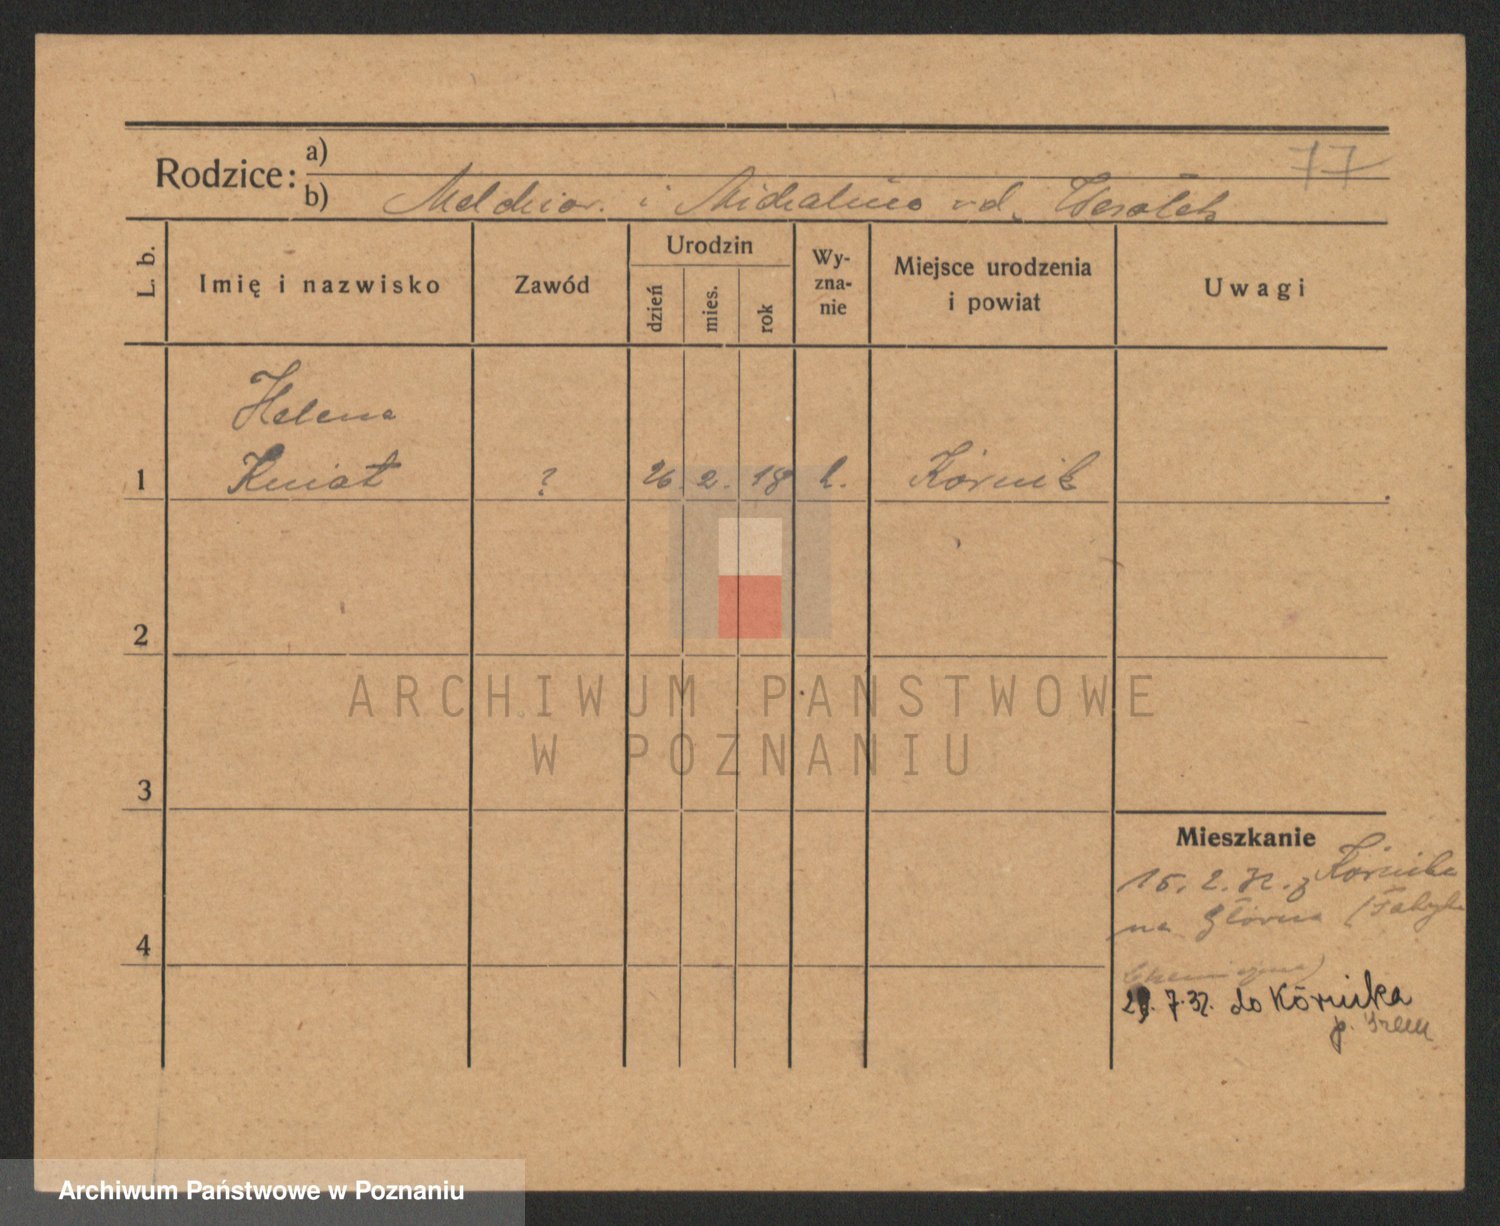 77
Rodzice: a)
b) Melchior. i Michalina
L. b.
Imię i nazwisko
Zawód
Urodzin
dzień
mies.
rok
Wy-
zna-
nie
Miejsce urodzenia
i powiat
Uwagi
Helena
1 Kwiat ? 26. 2. 18 k. Kórnik
2
3
4
Mieszkanie
15. 2. 32. z Kórnika
na Główna (Fabryka
Chemiczna)
7.32. do Kórnika
p. Śrem
ARCHIWUM PAŃSTWOWE
W POZNANIU
Archiwum Państwowe w Poznaniu